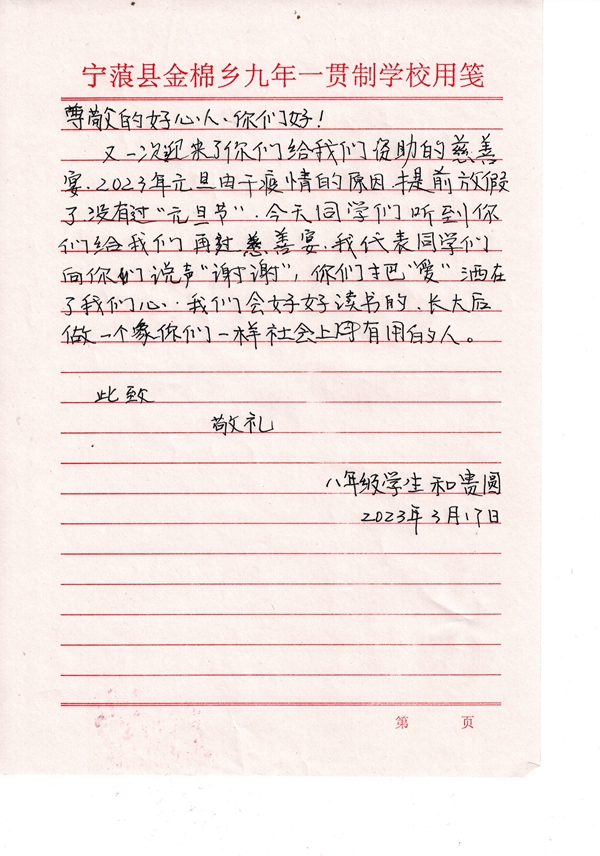 宁蒗县金棉乡九年一贯制学校用笺
尊敬的好心人、你们好！
又一次迎来了你们给我们资助的慈善
宴、2023年元旦由于疫情的原因、提前放假
了没有过“元旦节”、今天同学们听到你
们给我们再村慈善宴、我代表同学们
向你们说声“谢谢”，你们把“爱”洒在
了我们心、我们会好好读书的、长大后
做一个象你们一样社会上有用的人。
此致
敬礼
八年级学生 和贵圆
2023年3月17日
第 页